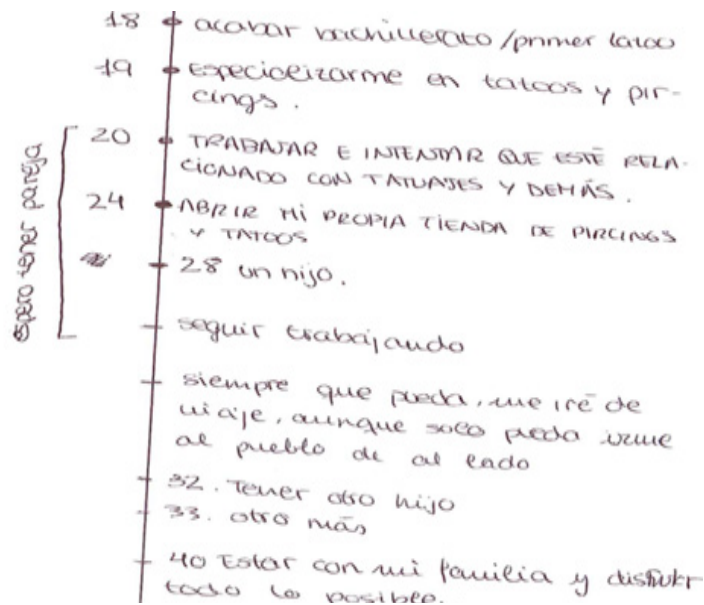 18 acabar bachillerato / primer tatoo
19 Especializarme en tatoos y pir-
cings.
20 TRABAJAR E INTENTAR QUE ESTÉ RELA-
CIONADO CON TATUAJES Y DEMÁS.
24 ABRIR MI PROPIA TIENDA DE PIRCINGS
Y TATOOS
28 un hijo.
seguir trabajando
siempre que pueda, me iré de
viaje, aunque solo pueda irme
al pueblo de al lado
32. Tener otro hijo
33. otro más
40 Estar con mi familia y disfrutar
todo lo posible.
espero tener pareja